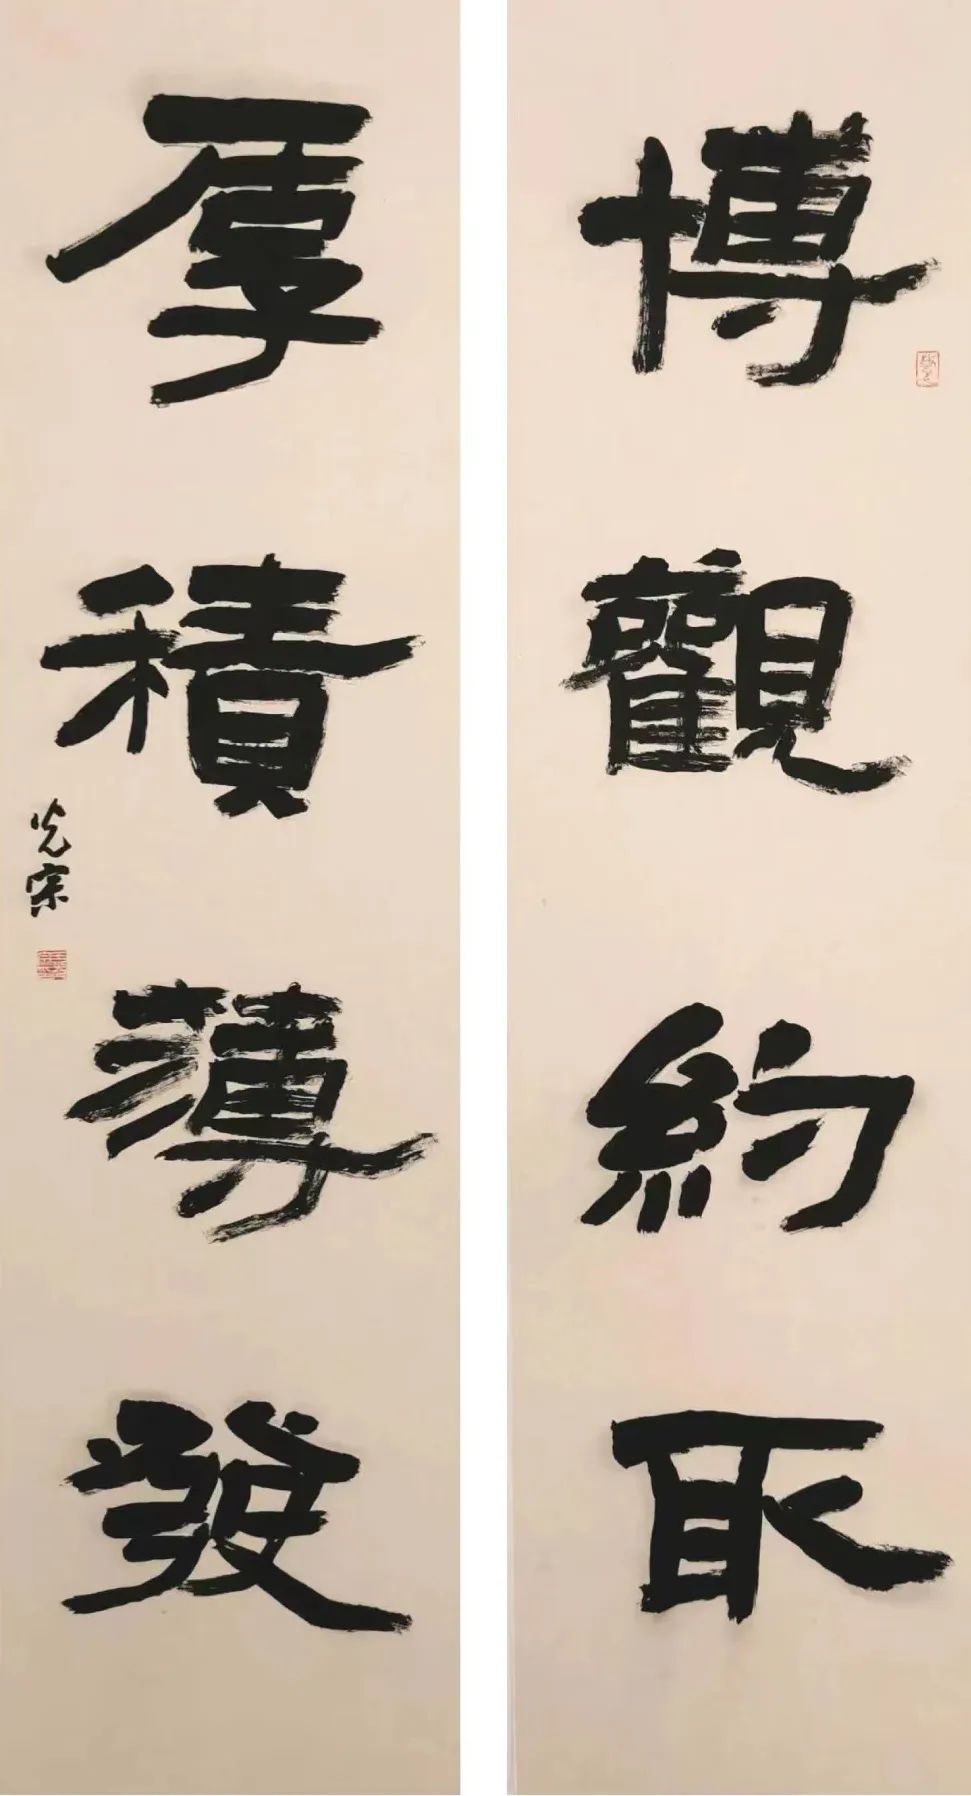 博觀約取
厚積薄發
光宗